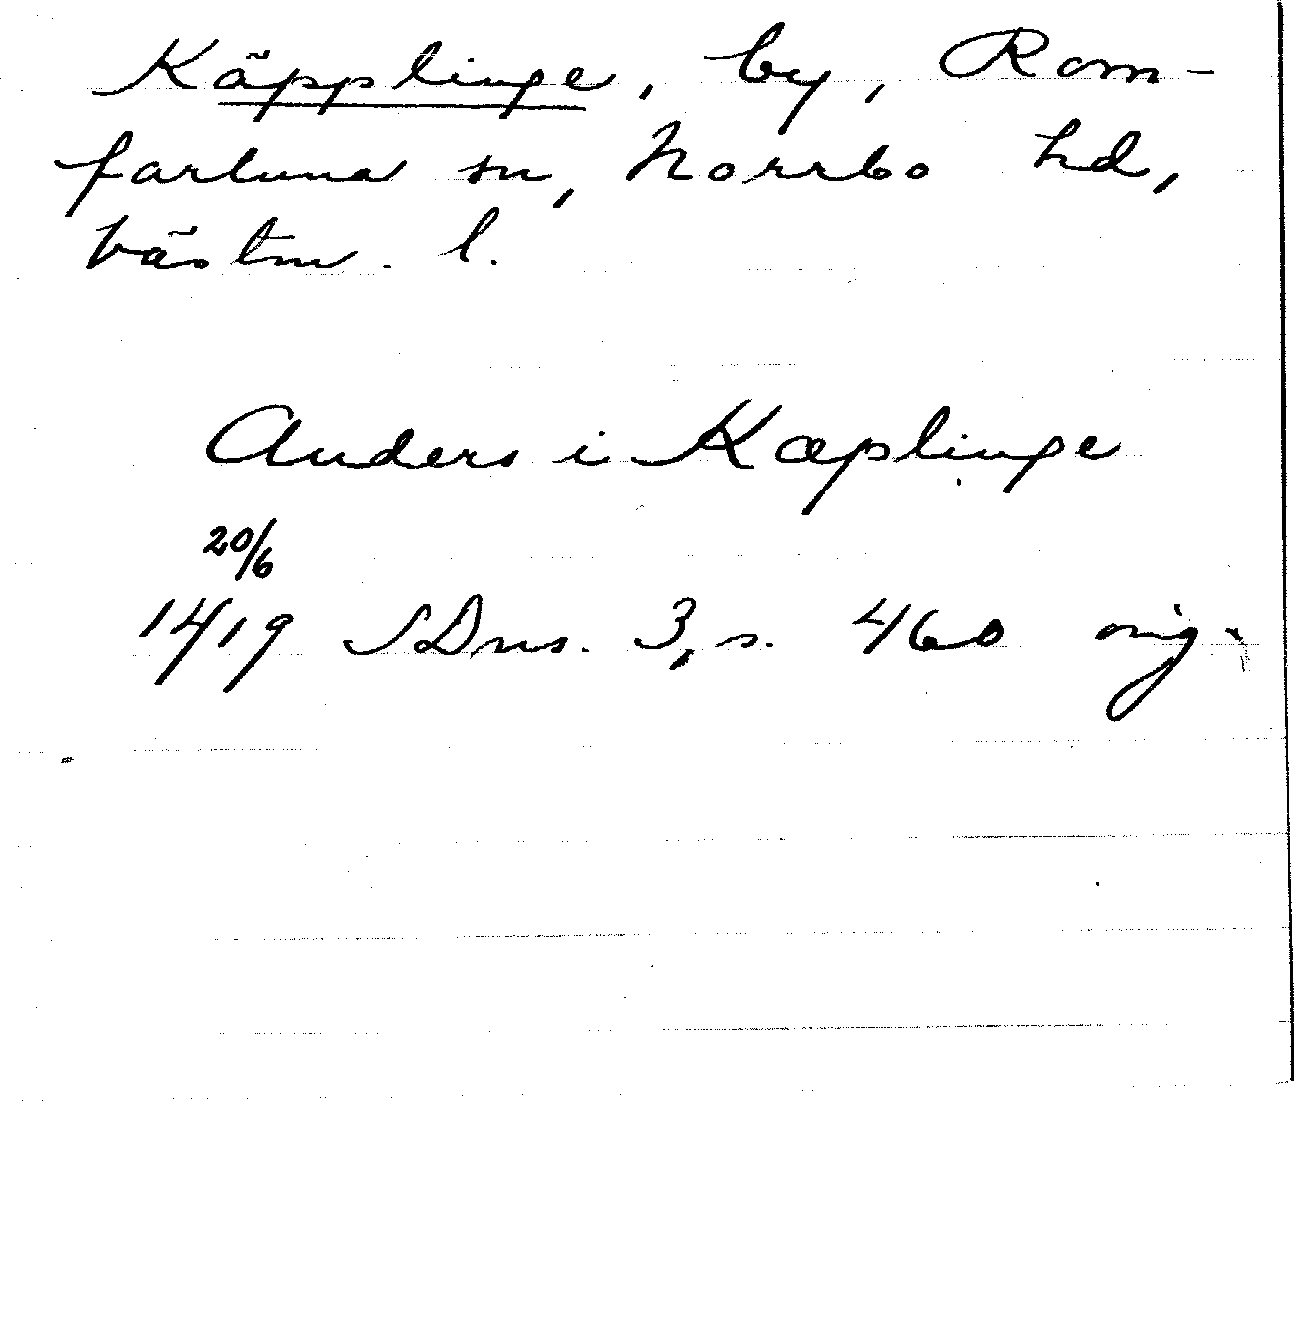 Käpplinge, by, Rom-
fartuna sn, Norrbo hd,
Västm. l.
Anders i Kæplinge
20/6
1419 SDns. 3, s. 460 orig.